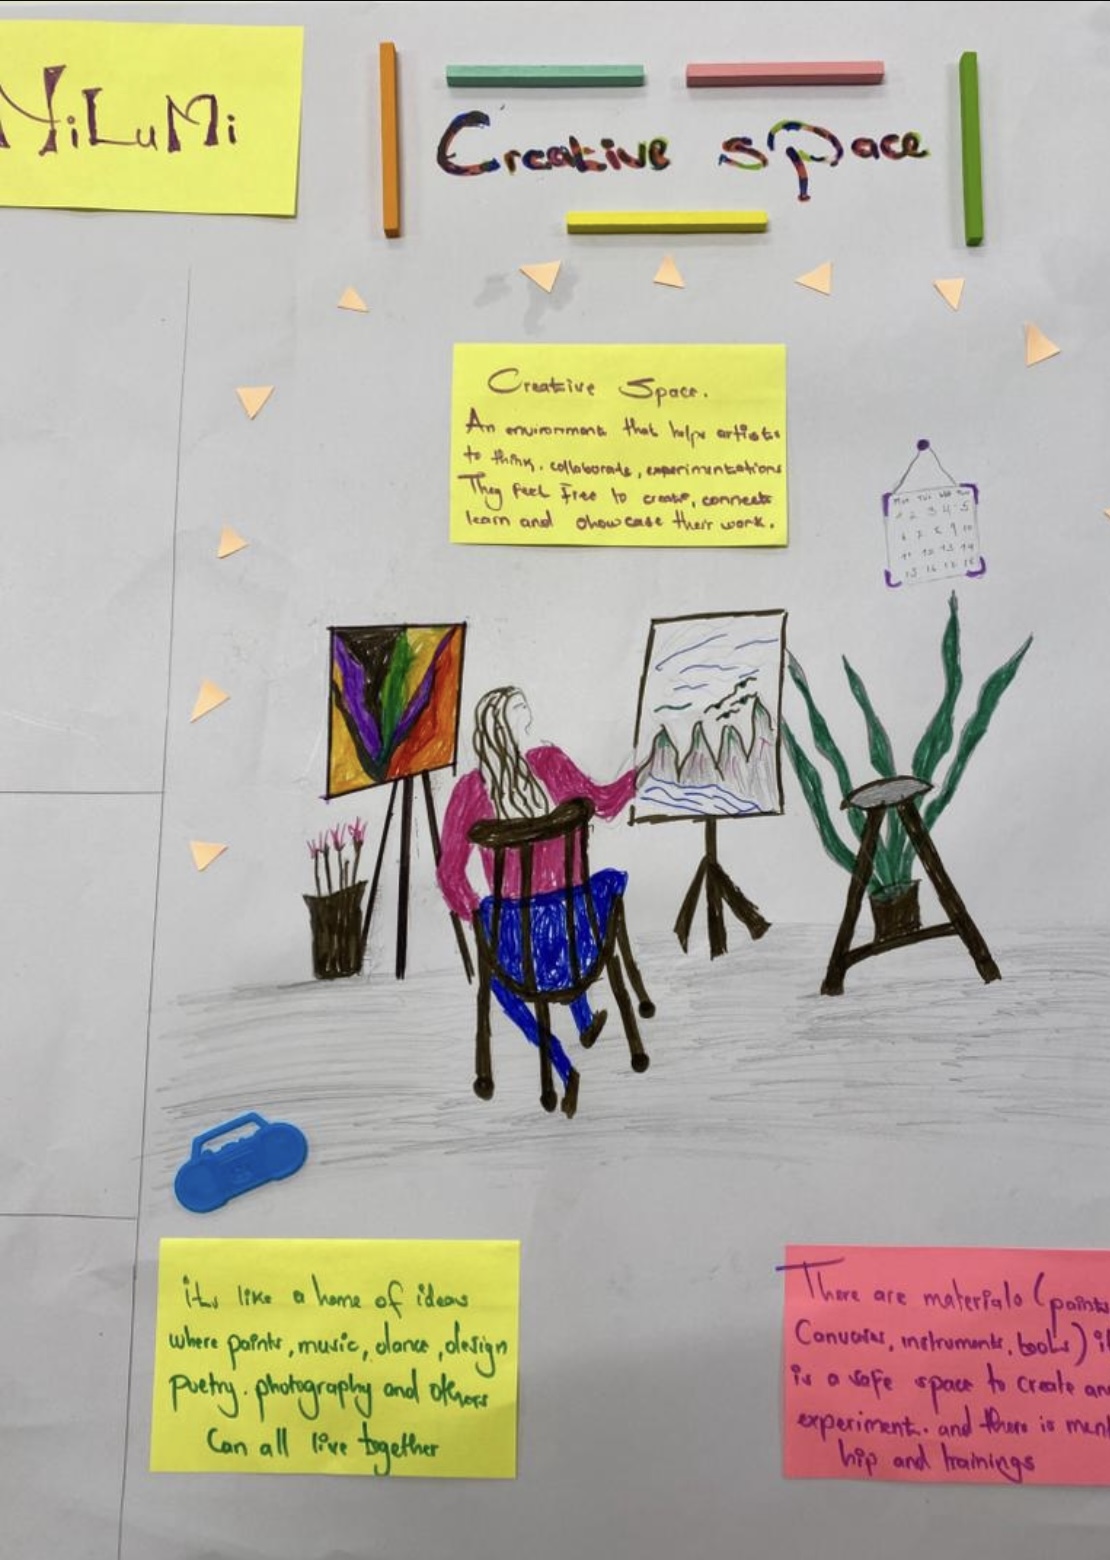 NiLuMi
Creative sPace
Creative Space.
An environment that helps artists
to think, collaborate, experimentations
They feel Free to create, connects
learn and showcase their work.
Mon Tue Wed Thu
1 2 3 4 5
6 7 8 9 10
11 12 13 14
15 16 17 18
its like a home of ideas
where paints, music, dance, design
Poetry. photography and others
Can all live together
There are materials (paints
Canvases, instruments, tools) it
is a safe space to create and
experiment. and there is ment
hip and trainings